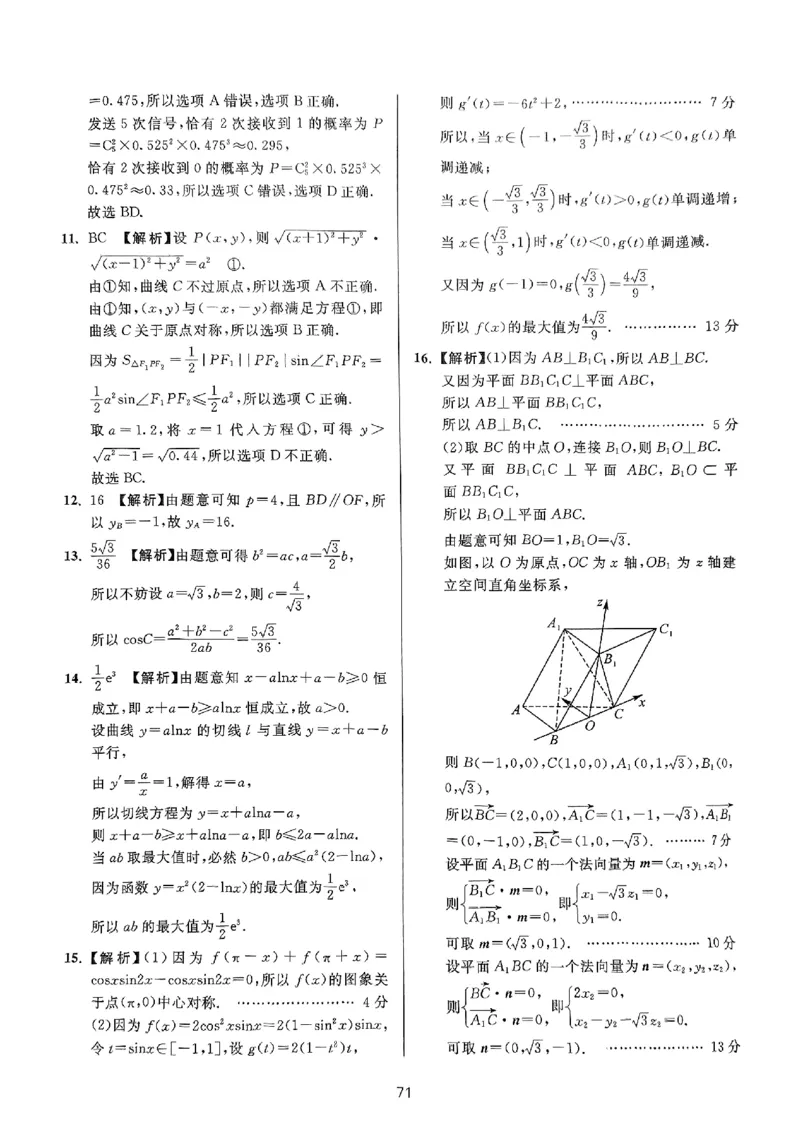 =0.475,所以选项A错误,选项B正确.
发送5次信号,恰有2次接收到1的概率为P
=C₅²×0.525²×0.475³≈0.295,
恰有2次接收到0的概率为P=C₅²×0.525³×
0.475²≈0.33,所以选项C错误,选项D正确.
故选BD.
11. BC 【解析】设P(x,y),则√((x+1)²+y²)·
√((x-1)²+y²)=a² ①.
由①知,曲线C不过原点,所以选项A不正确.
由①知,(x,y)与(-x,-y)都满足方程①,即
曲线C关于原点对称,所以选项B正确.
因为S△F₁PF₂=1/2|PF₁||PF₂|sin∠F₁PF₂=
1/2a²sin∠F₁PF₂≤1/2a²,所以选项C正确.
取a=1.2,将x=1代入方程①,可得y>
√(a²-1)=√0.44,所以选项D不正确.
故选BC.
12. 16 【解析】由题意可知p=4,且BD∥OF,所
以y_B=-1,故y_A=16.
13. 5√3/36 【解析】由题意可得b²=ac,a=√3/2b,
所以不妨设a=√3,b=2,则c=4/√3,
所以cosC=(a²+b²-c²)/2ab=5√3/36.
14. 1/2e³ 【解析】由题意知x-alnx+a-b≥0恒
成立,即x+a-b≥alnx恒成立,故a>0.
设曲线y=alnx的切线l与直线y=x+a-b
平行,
由y′=a/x=1,解得x=a,
所以切线方程为y=x+alna-a,
则x+a-b≥x+alna-a,即b≤2a-alna.
当ab取最大值时,必然b>0,ab≤a²(2-lna),
因为函数y=x²(2-lnx)的最大值为1/2e³,
所以ab的最大值为1/2e³.
15.【解析】(1)因为f(π-x)+f(π+x)=
cosxsin2x-cosxsin2x=0,所以f(x)的图象关
于点(π,0)中心对称. …………………… 4分
(2)因为f(x)=2cos²xsinx=2(1-sin²x)sinx,
令t=sinx∈[-1,1],设g(t)=2(1-t²)t,
则g′(t)=-6t²+2,……………………… 7分
所以,当x∈(-1,-√3/3)时,g′(t)<0,g(t)单
调递减;
当x∈(-√3/3,√3/3)时,g′(t)>0,g(t)单调递增;
当x∈(√3/3,1)时,g′(t)<0,g(t)单调递减.
又因为g(-1)=0,g(√3/3)=4√3/9,
所以f(x)的最大值为4√3/9. …………… 13分
16.【解析】(1)因为AB⊥B₁C₁,所以AB⊥BC.
又因为平面BB₁C₁C⊥平面ABC,
所以AB⊥平面BB₁C₁C,
所以AB⊥B₁C. ………………………… 5分
(2)取BC的中点O,连接B₁O,则B₁O⊥BC.
又平面BB₁C₁C⊥平面ABC,B₁O⊂平
面BB₁C₁C,
所以B₁O⊥平面ABC.
由题意可知BO=1,B₁O=√3.
如图,以O为原点,OC为x轴,OB₁为z轴建
立空间直角坐标系,
z
A₁
C₁
B₁
y
x
A
C
O
B
则B(-1,0,0),C(1,0,0),A₁(0,1,√3),B₁(0,
0,√3),
所以BC→=(2,0,0),A₁C→=(1,-1,-√3),A₁B₁→
=(0,-1,0),B₁C→=(1,0,-√3). ……… 7分
设平面A₁B₁C的一个法向量为m=(x₁,y₁,z₁),
则{B₁C→·m=0, A₁B₁→·m=0, 即{x₁-√3z₁=0, y₁=0.
可取m=(√3,0,1). …………………… 10分
设平面A₁BC的一个法向量为n=(x₂,y₂,z₂),
则{BC→·n=0, A₁C→·n=0, 即{2x₂=0, x₂-y₂-√3z₂=0.
可取n=(0,√3,-1). ………………… 13分
71